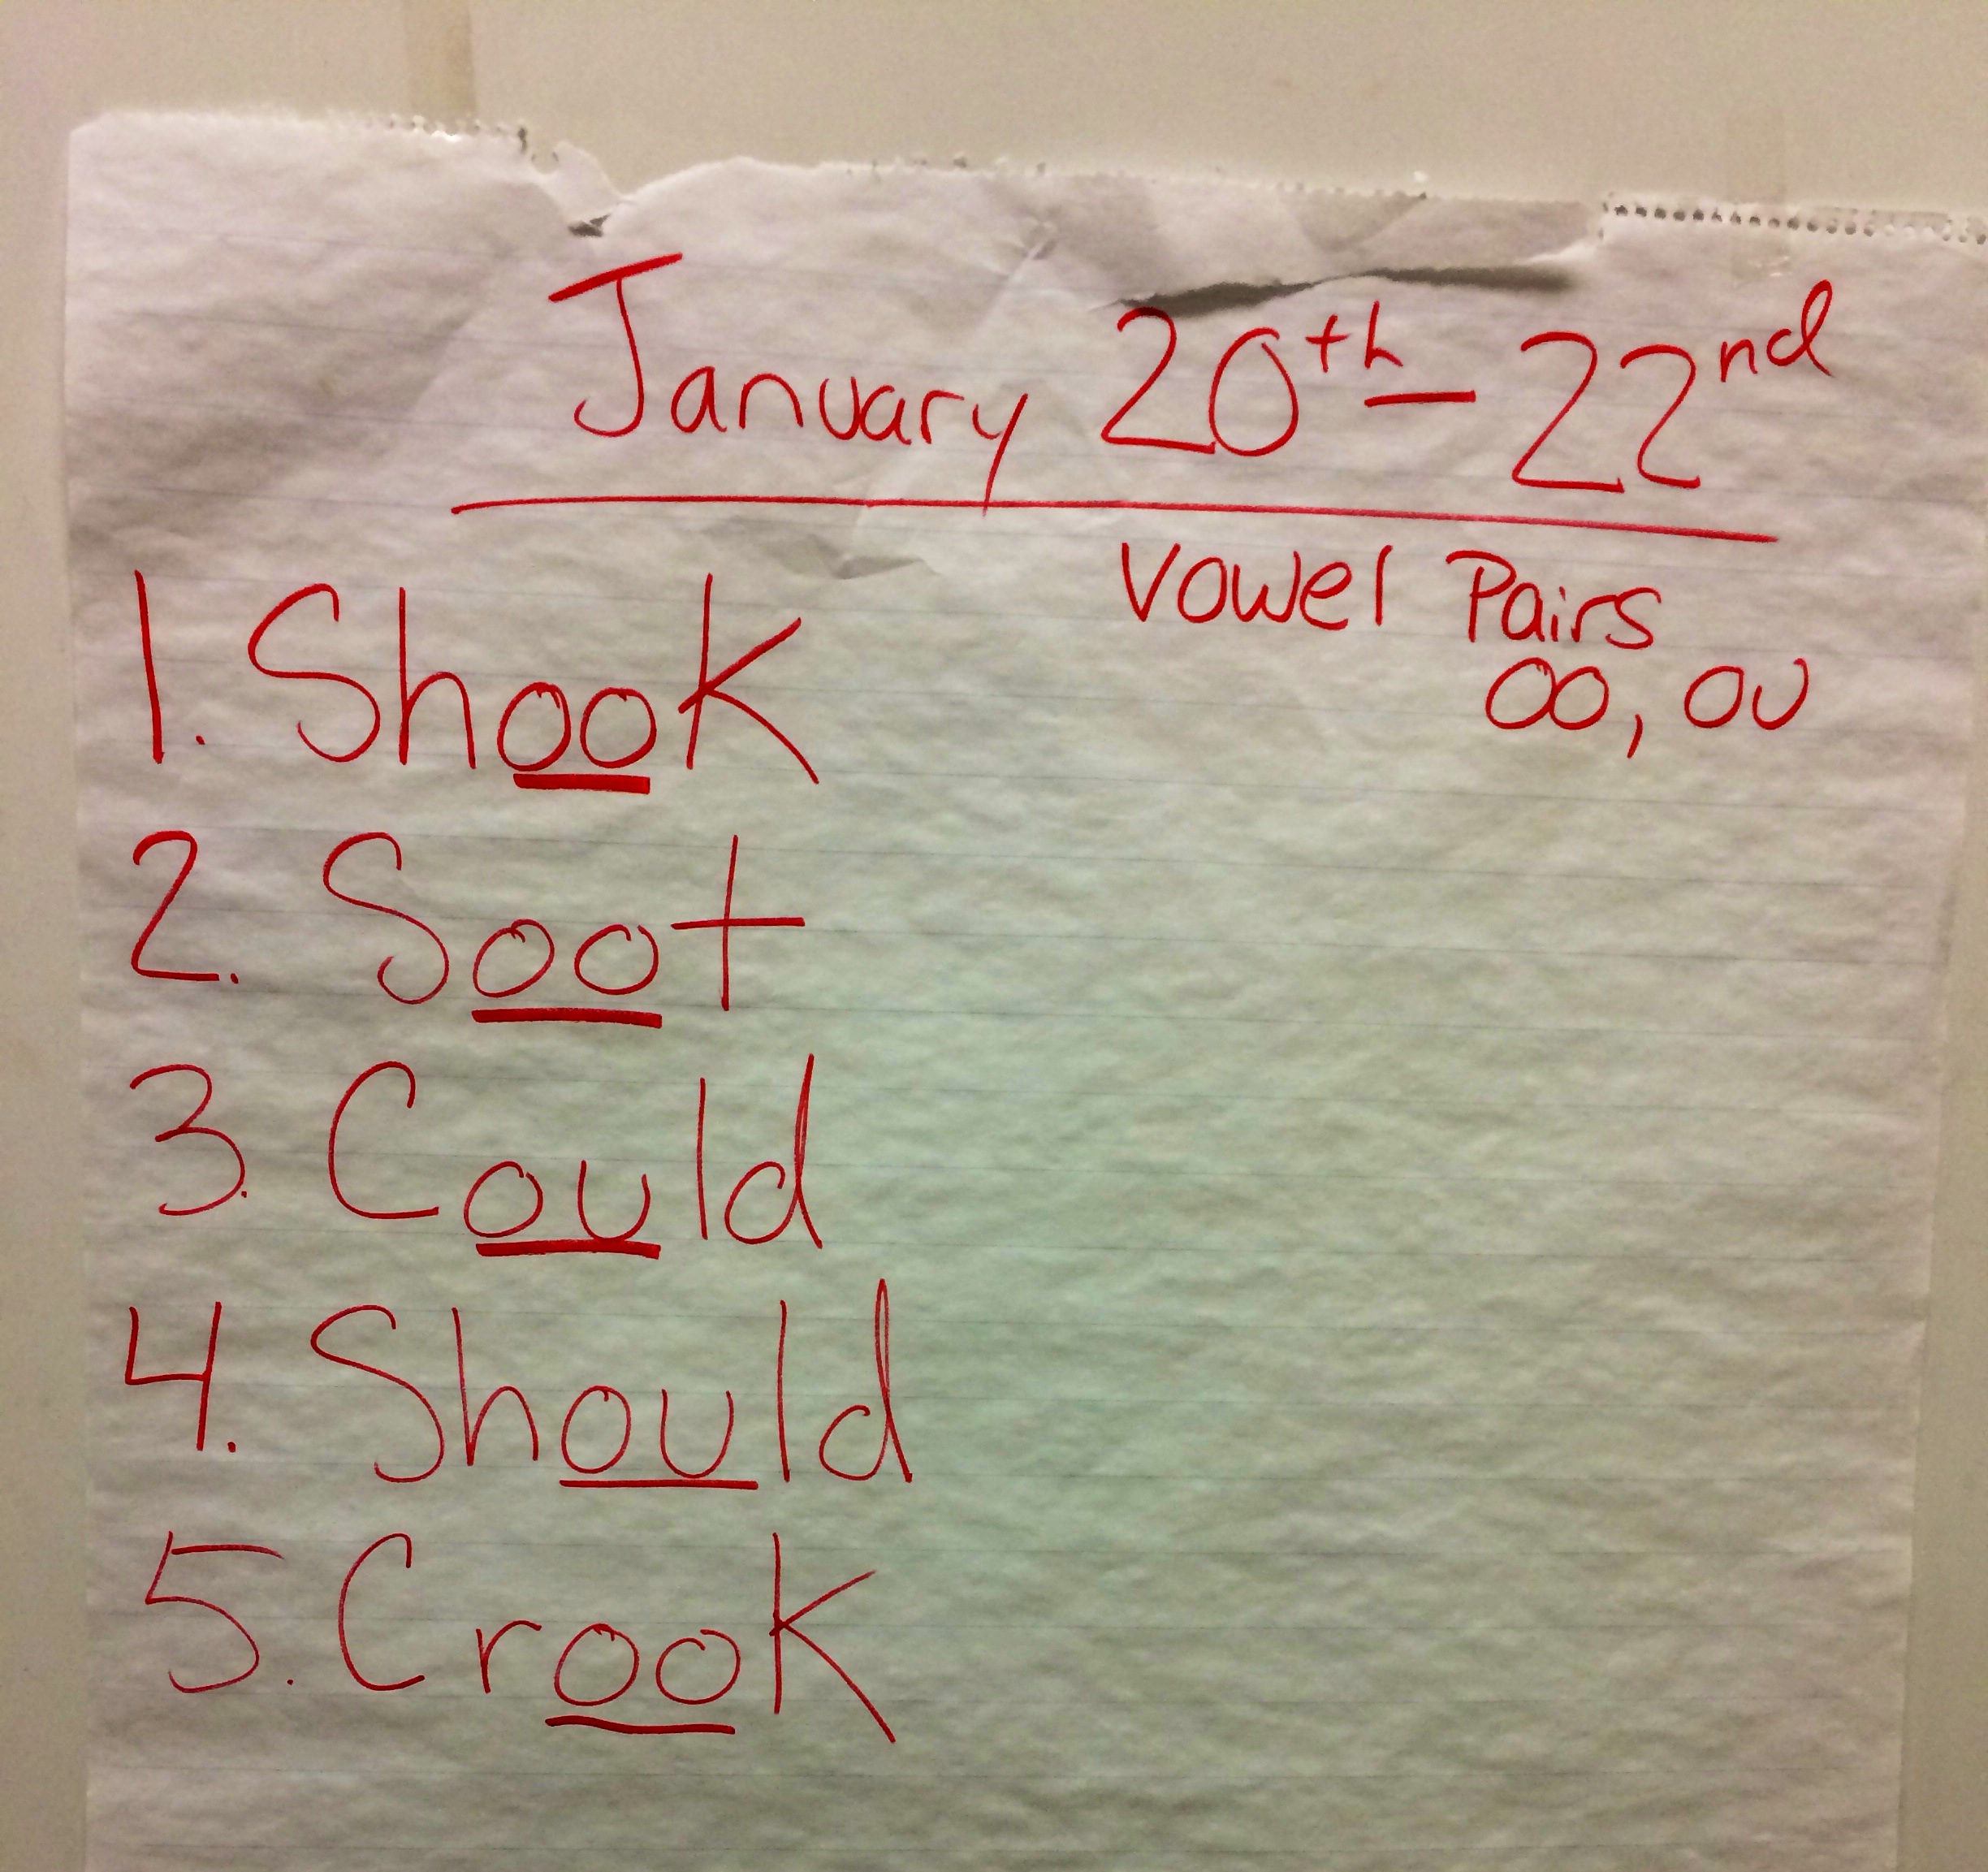 January 20th - 22nd
Vowel Pairs
oo, ou
1. Shook
2. Soot
3. Could
4. Should
5. Crook